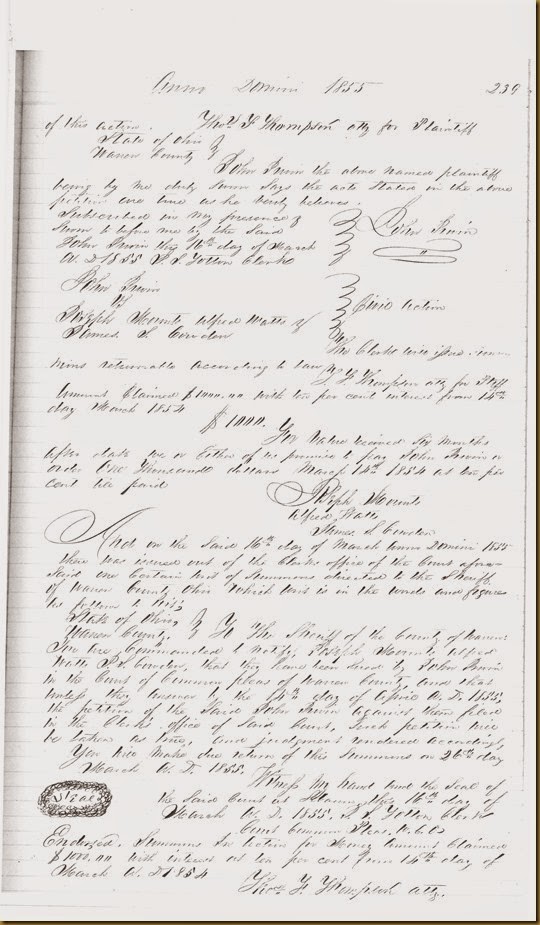 Anno Domini 1855 239
of this action. Thos. F Thompson atty for Plaintiff
State of Ohio
Warren County
John Irwin the above named plaintiff
being by me duly sworn says the acts stated in the above
petition are true as he verily believes.
Subscribed in my presence &
sworn to before me by the said
John Irwin this 16th day of March
A. D 1855 Totten Clerk
John Irwin
John Irwin
vs
Joseph Mounts Alfred Watts &
James S. Cowden
Civil Action
The Clerk will issue
returnable according to law
F. Thompson atty for Plff
Amount Claimed $1000.00 with ten per cent interest from 14th
day March 1854
$1000.
For Value received Six months
after date we or Either of us promise to pay John Irwin or
order One Thousand dollars March 14th 1854 at ten per
cent till paid
Joseph Mounts
Alfred Watts
James S Cowden
And on the said 16th day of March Anno Domini 1855
there was issued out of the Clerks office of the Court afore-
said one certain writ of Summons directed to the Sheriff
of Warren County Ohio which writ is in the words and figures
as follows to wit;
State of Ohio
Warren County. To The Sheriff of the County of Warren
You are Commanded to notify, Joseph Mounts Alfred
Watts Cowden, that they have been sued by John Irwin
in the Court of Common pleas of Warren County and that
unless they answer by the 14th day of April A. D. 1855,
the petition of the said John Irwin against them filed
in the Clerks office of said Court, such petition will
be taken as true, and judgment rendered accordingly,
You will make due return of this summons on 26th day
March A. D. 1855. Witness my hand and the Seal of
the said Court at 16th day of
March A. D. 1855. Totten Clerk
Seal
Court Common Pleas.
Endorsed. Summons in Action for Money Amount Claimed
$1000.00 with interest at ten per cent from 14th day of
March A. D 1854
Thos F. Thompson atty.